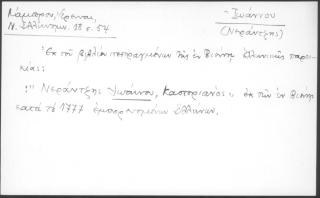 Λάμπρου, Σπυρίδ.
Ν. Ἑλληνομν. 18 σ. 54
Ἰωάννου
(Νεράντζης)
Ἐκ τοῦ βιβλίου πεπραγμένων τῆς ἐν Βιέννῃ ἑλληνικῆς παροικίας:
"Νεράντζης Ἰωάννου, Καστοριανὸς" ἐκ τῶν ἐν Βιέννῃ
κατὰ τὸ 1777 ἐμπορευομένων Ἑλλήνων.